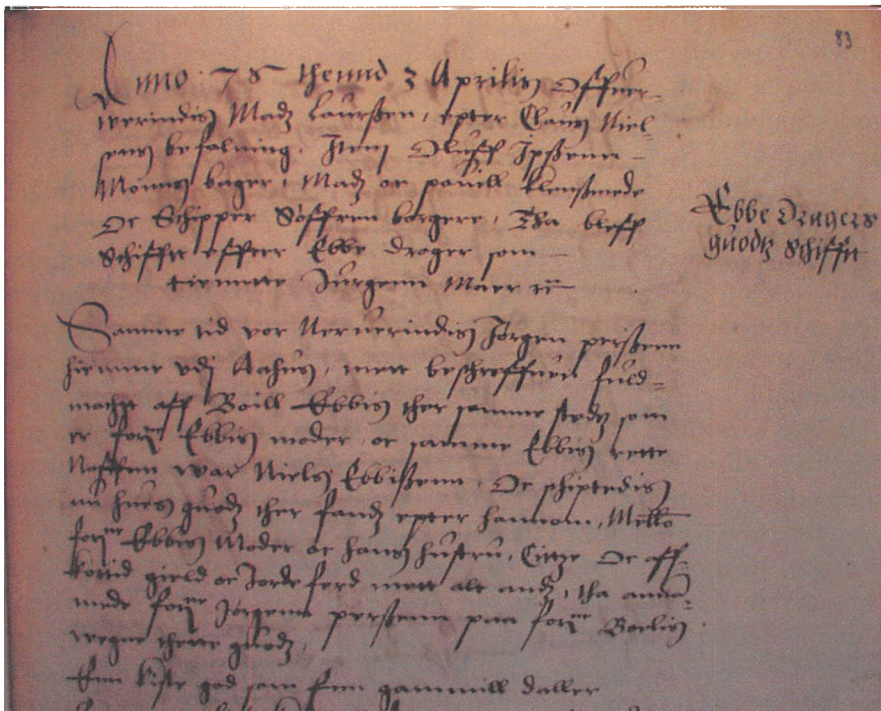 83
Anno 78 thennd 3 Aprilis Offuer-
werindis Madz Laurßen, epter Clauus Niel-
sens befalning. Item Oluff Ipßenn
Monns bager, Madz oc pouill klenßmede
Oc Schipper Söffren borgere, Tha bleff
Schifftt effter Ebbe Drager som
tiennette Jurgenn Maer
Ebbe Dragers
guodtz Schifftt
Samme tid vor Neruerindis Jörgen perßenn
hiemme vdj Aahus, mett beschreffuen fuld-
machtt aff Boill Ebbis ther samme stedz som
er forne Ebbis moder, oc samme Ebbis rette
Naffnn war Niels Ebbißenn, Oc schiptedis
nu hues guodz ther fandz epter hannom, Mellom
forne Ebbis Moder oc hans hustru, Citze Oc aff-
kortid gield oc Jordeferd mett alt andz, tha anna-
mede forne Jörgenn perßenn paa forne Boelis
wegne thette guodz,
Enn kiste god som enn gammill daller